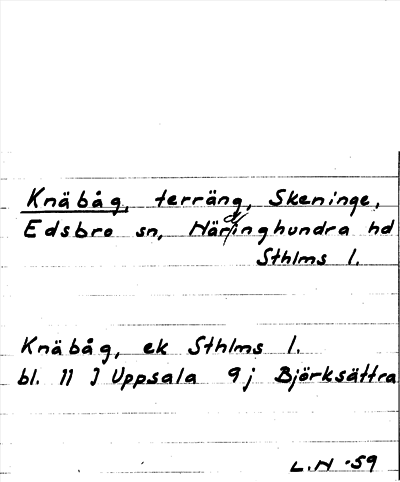 Knäbåg, terräng, Skeninge,
Edsbro sn, Närdinghundra hd
Sthlms l.
Knäbåg, ek Sthlms l.
bl. 11 I Uppsala 9j Björksättra
L.N -59